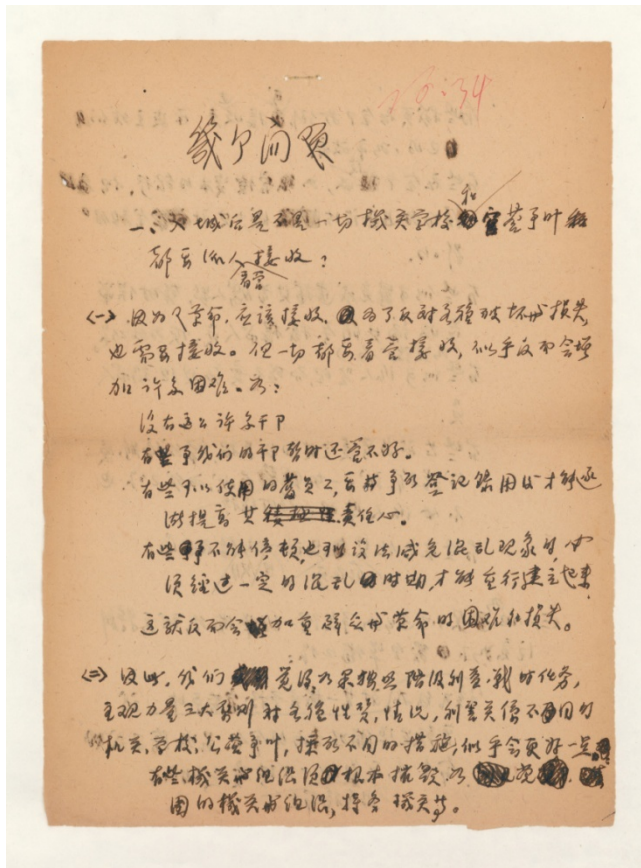 几个问题
一、入城后是否是一切機关学校和公营事业
都要派人接收?
看管
<一> 因为了革命,应该接收,为了反对各種破坏与损失
也需要接收。但一切都要看管接收,似乎反而会增
加许多困难。如:
没有这么许多干P
有些事我们的干P暂时还管不好。
有些可以使用的舊员工,要等登记録用后才能逐
渐提高其责任心。
有些事不能停顿,也设法减免混乱现象时,必
须经过一定的混乱时期,才能重行建立起来
这就反而会加重群众与革命的困难和损失。
<二> 因此,我们觉得如果按照阶级利益,戰时任务,
主观力量三大原则对各種性質,情况,利害关係不同的
机关,学校,公营事业,採取不同的措施,似乎会更好一点
有些機关与组织须根本摧毁如党
團的機关与组织,特务機关等。